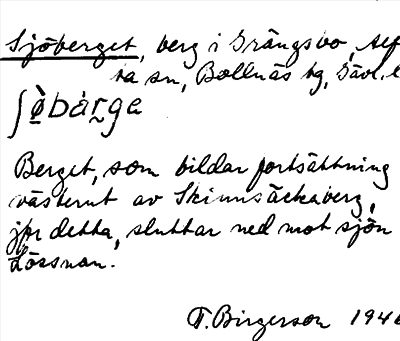 Sjöberget, berg i Grängsbo, Alf
ta sn, Bollnäs tg, Gävl. l
Berget, som bildar fortsättning
västerut av Skinnsäckaberg,
jfr detta, sluttar ned mot sjön
Lössnan.
T. Birgerson 1946